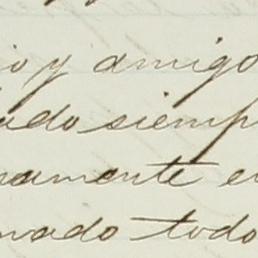 io y amigo
ado siemp
namente e
mado todo